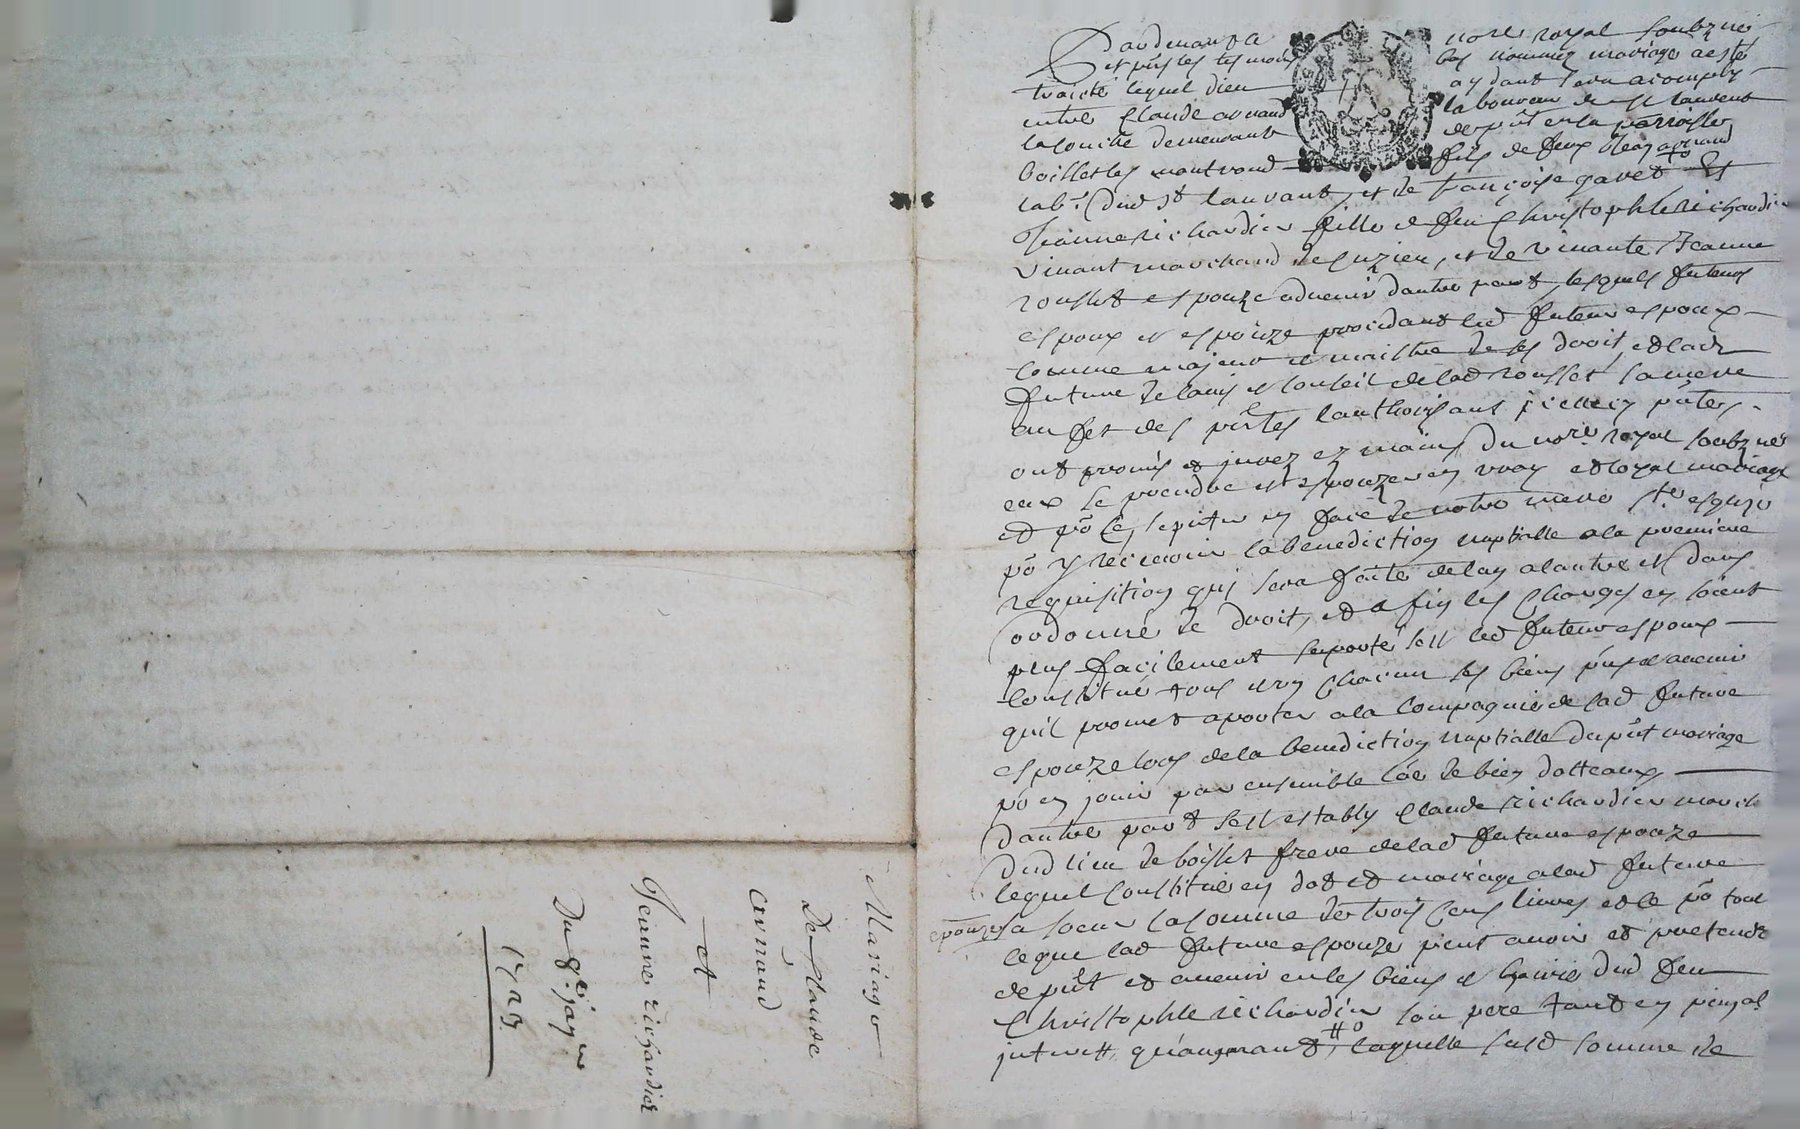 Pardevant le nore royal soubzne
et pnts les tesmoins bas nommez mariage a esté
traicté lequel dieu aydant sera acomply
entre Claude arnaud laboureur de st laurent
la conche demeurant de pnt en la parroisse
boisset les montrond fils de feux
labr. dud st laurant, et de françoise gavet Et
Jeanne richardier fille de feu Christophle richardier
vivant marchand de Cuzieu, et de vivante Jeanne
rousset espouze advenir dautre part lesquels futeurs
espoux et espouze procedant led futeur espoux
comme majeur et maistre de ses droit, et lad
future de lauis et conseil de lad rousset sa mere
au fet des pntes lauthorisant
ont promis et jurez ez mains du nore royal soubzné
eux se prendre et espouzer en vray et loyal mariage
et po ce, se pnter en face de notre mere ste esglize
po y recevoir la benediction nuptialle a la premiere
requisition qui sera faite de lun a lautre et dans
ordonné de droit, et afin les charges en soient
plus facilement suporté sest led futeur espoux
constitué tous et un chacun ses biens pnts et avenir
quil promet aporter a la compagnie de lad future
espouze lors de la benediction nuptialle du pnt mariage
po en jouir par ensemble de bien dotteaux
dautre part sest estably Claude richardier march
dud lieu de boisset frere de lad future espouze
lequel constitue en dot et mariage a lad future
epouze sa soeur la somme de trois cens livres et ce po tout
ce que lad future espouze peut avoir et pretendre
de pnt et avenir en les biens et hoirie dud feu
Christophle richardier son pere tant en pinpal
interest, quaugmant, laquelle susd somme de
Mariage
De Claude
arnaud
et
Jeanne richardier
Du 9e janer
1723